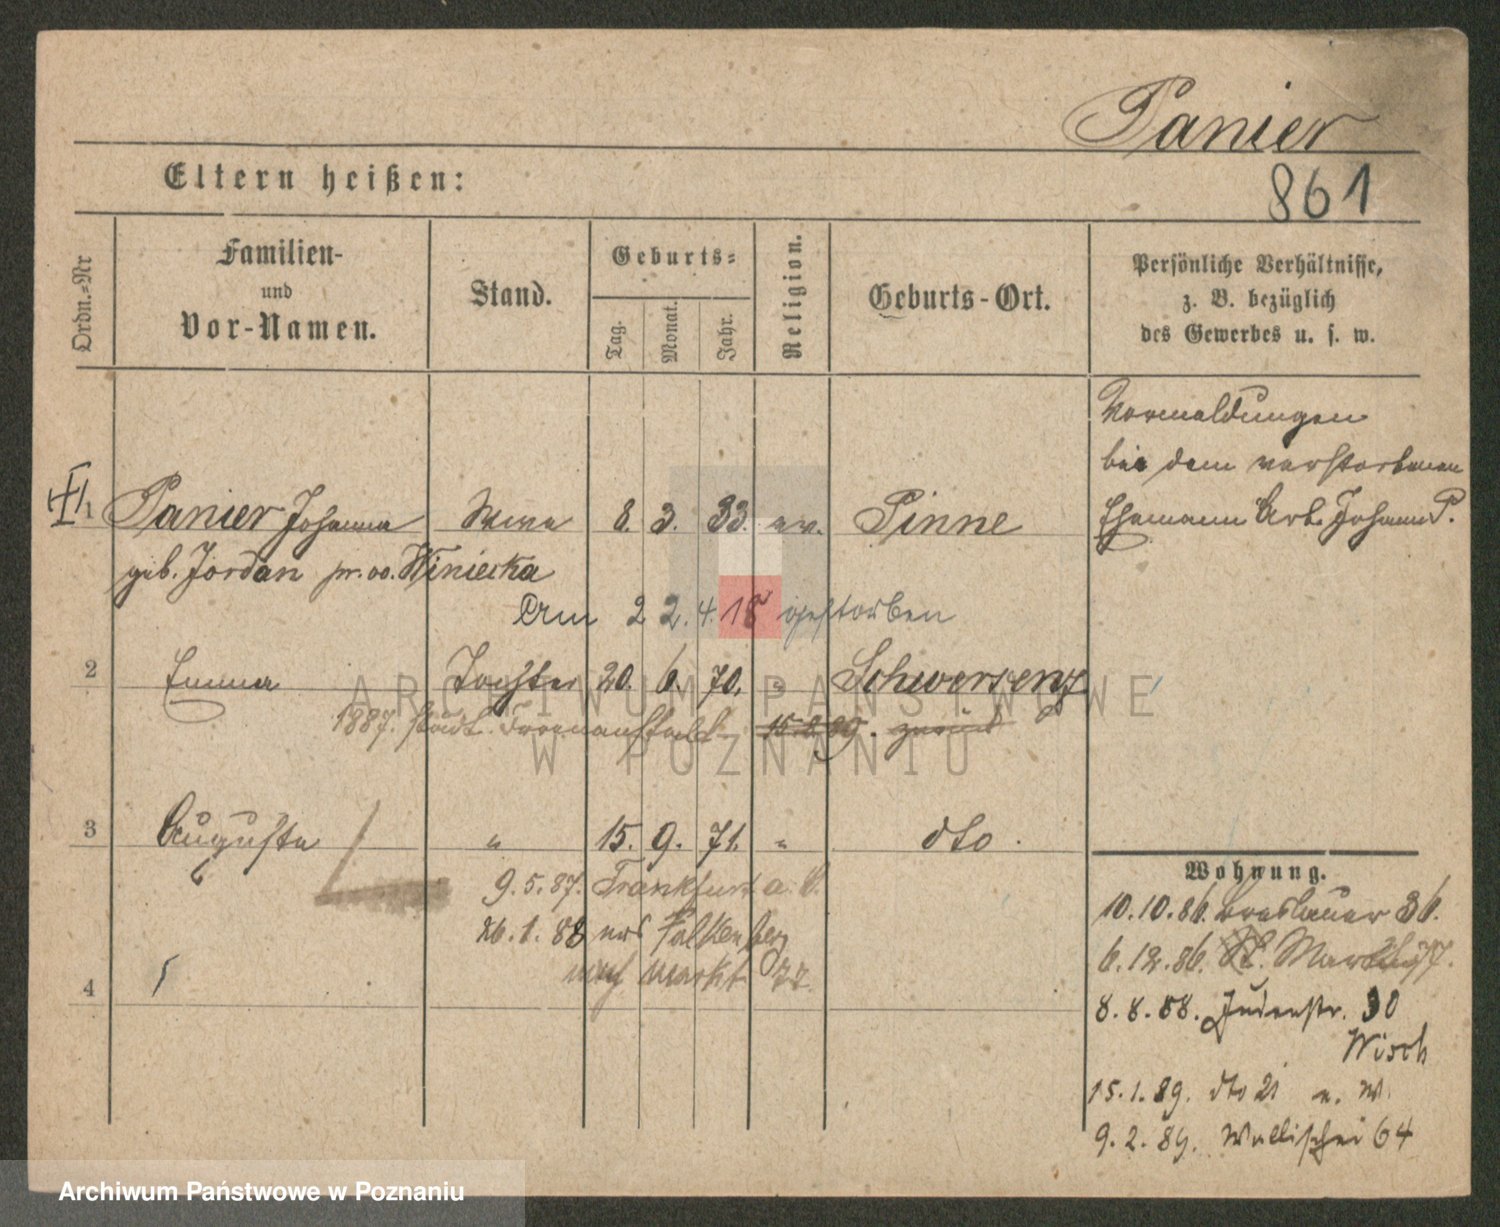 Panier
Eltern heißen:
861
Ordn.-Nr
Familien-
und
Vor-Namen.
Stand.
Geburts-
Tag.
Monat.
Jahr.
Religion.
Geburts-Ort.
Persönliche Verhältnisse,
z. B. bezüglich
des Gewerbes u. s. w.
Vormeldungen
bei dem verstorbenen
Ehemann Arb. Johann P.
1 Panier Johanna Wwe 8. 3. 33. ev. Pinne
geb. Jordan Winiecka
Am 22. 4. 18 gestorben
2 Emma Tochter 20. 6. 70. " Schwersenz
1887. städt. Irrenanstalt 15.8.89. zurück
3 Auguste " 15. 9. 71. " dto.
9.5.87. Frankfurt a. O.
26.1.88 Falkenberg
nach Markt 77.
4
Wohnung.
10.10.86. Breslauer 36.
6.12.86. St. Martin 77.
8.8.88. Judenstr. 30
Wisch
15.1.89. dto 21 n. W.
9.2.89. Wallischei 64
ARCHIWUM PAŃSTWOWE
W POZNANIU
Archiwum Państwowe w Poznaniu